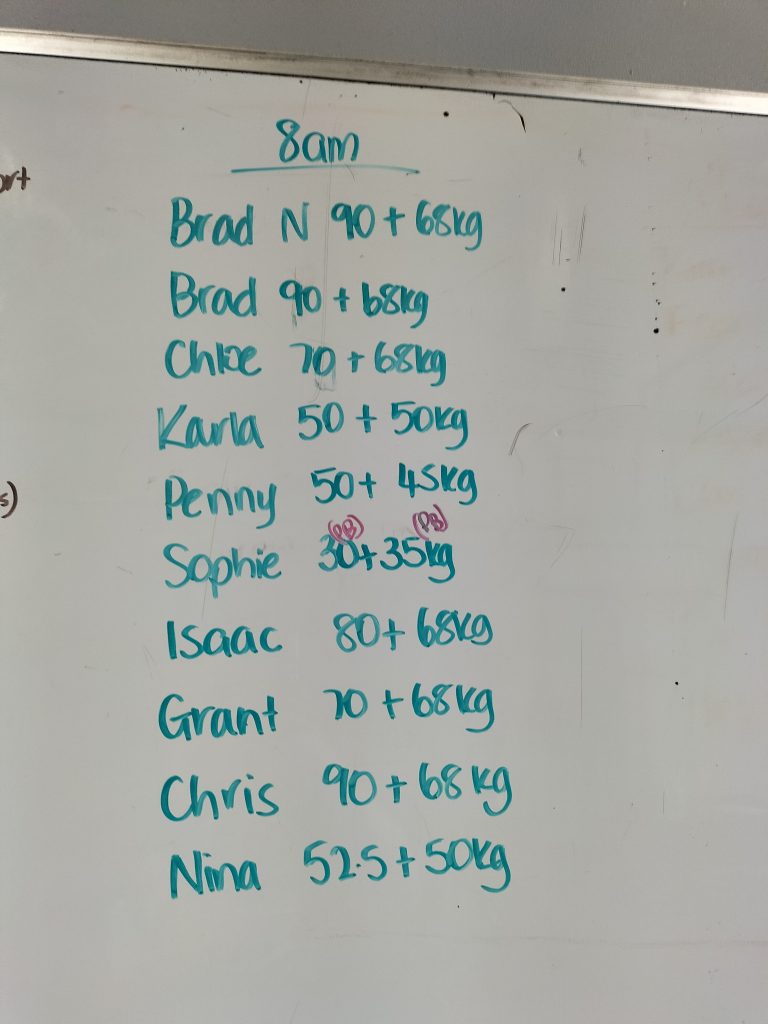 8am
Brad N 90 + 68kg
Brad 90 + 68kg
Chloe 70 + 68kg
Karla 50 + 50kg
Penny 50 + 45kg
(PB) (PB)
Sophie 30 + 35kg
Isaac 80 + 68kg
Grant 70 + 68kg
Chris 90 + 68kg
Nina 52.5 + 50kg